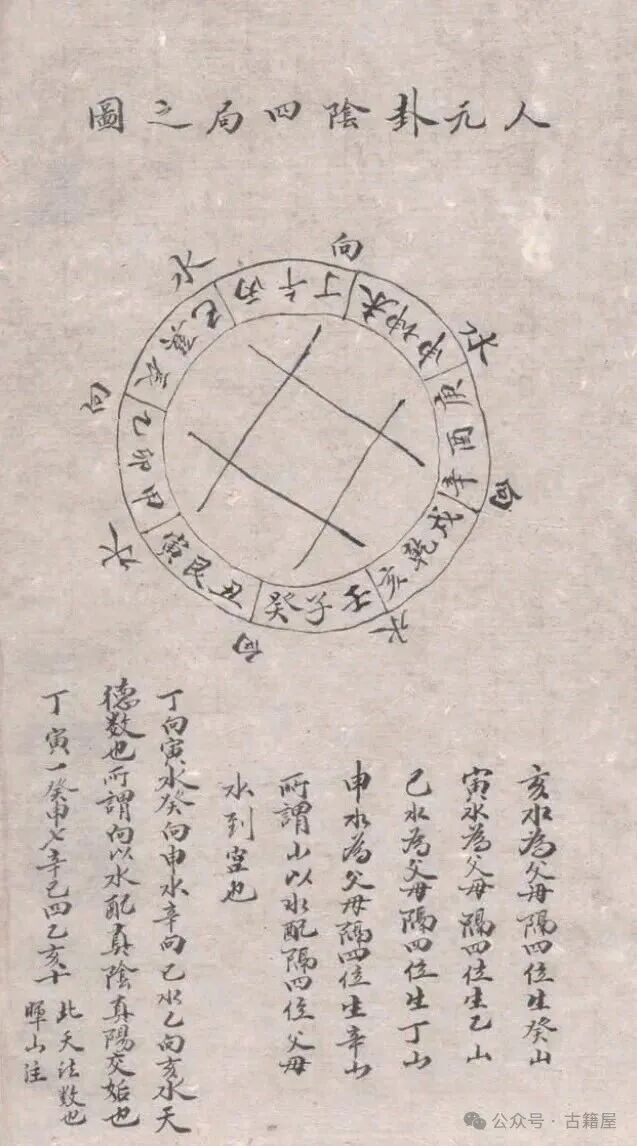 人元卦陰四局之圖
向
水
向
水
向
水
向
水
丙午丁
未坤申
庚酉辛
戌乾亥
壬子癸
丑艮寅
甲卯乙
辰巽巳
亥水為父母隔四位生癸山
寅水為父母隔四位生乙山
巳水為父母隔四位生丁山
申水為父母隔四位生辛山
所謂山以水配隔四位父母
水到空也
丁向寅水癸向申水辛向巳水乙向亥水天
德数也所謂向以水配真陰真陽交姤也
丁寅一癸申七辛巳四乙亥十
此天法数也
暉山注
公众号·古籍屋